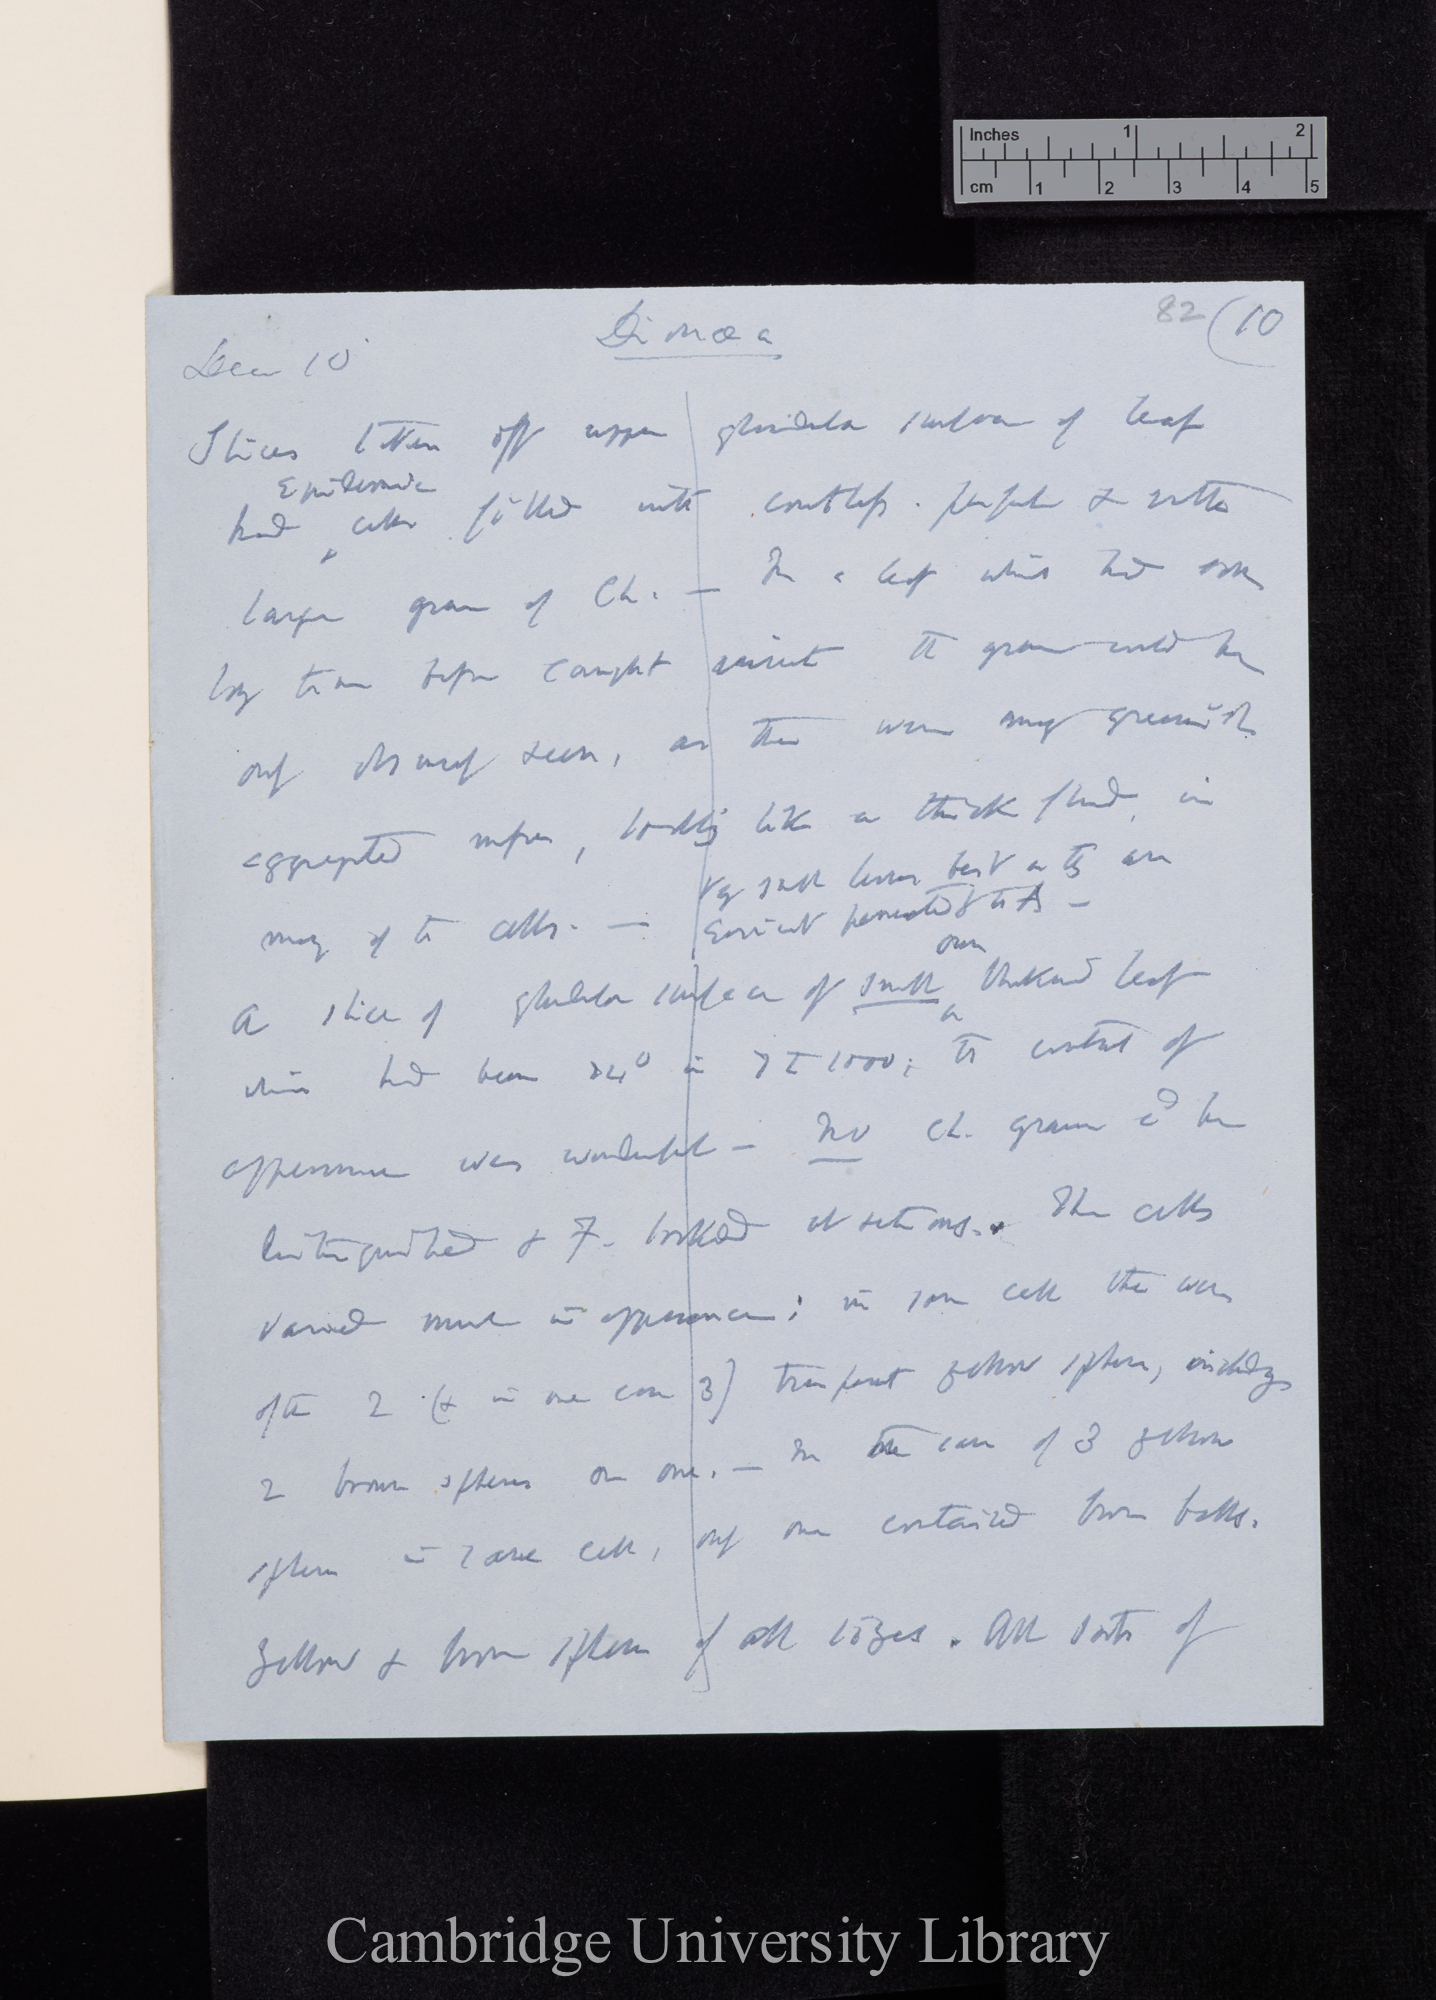 Inches 1 2
cm 1 2 3 4 5
82 (10
Dionæa
Dec 10
Slices taken off upper glandular surface of leaf
Epidermic
had cells filled with countless perfect & rather
large grains of Ch. — In a leaf which had some
long time before caught insect the grains could be
only obscurely seen, as there were many greenish
aggregated masses, looking like a thick fluid, in
many of the cells. —
Very small leaves best as they are
easiest penetrated
own
A slice of glandular surface of small leaf
which had been 24° in 7 to 1000; the contents of
appearance was wonderful — No Ch. grains cd be
distinguished & F. looked at sections. The cells
varied much in appearance; in some cells there were
often 2 (& in one case 3) transparent yellow spheres, including
2 brown spheres or one. — In the case of 3 yellow
spheres in same cell, only one contained brown balls.
Yellow & brown spheres of all sizes. All sorts of
Cambridge University Library